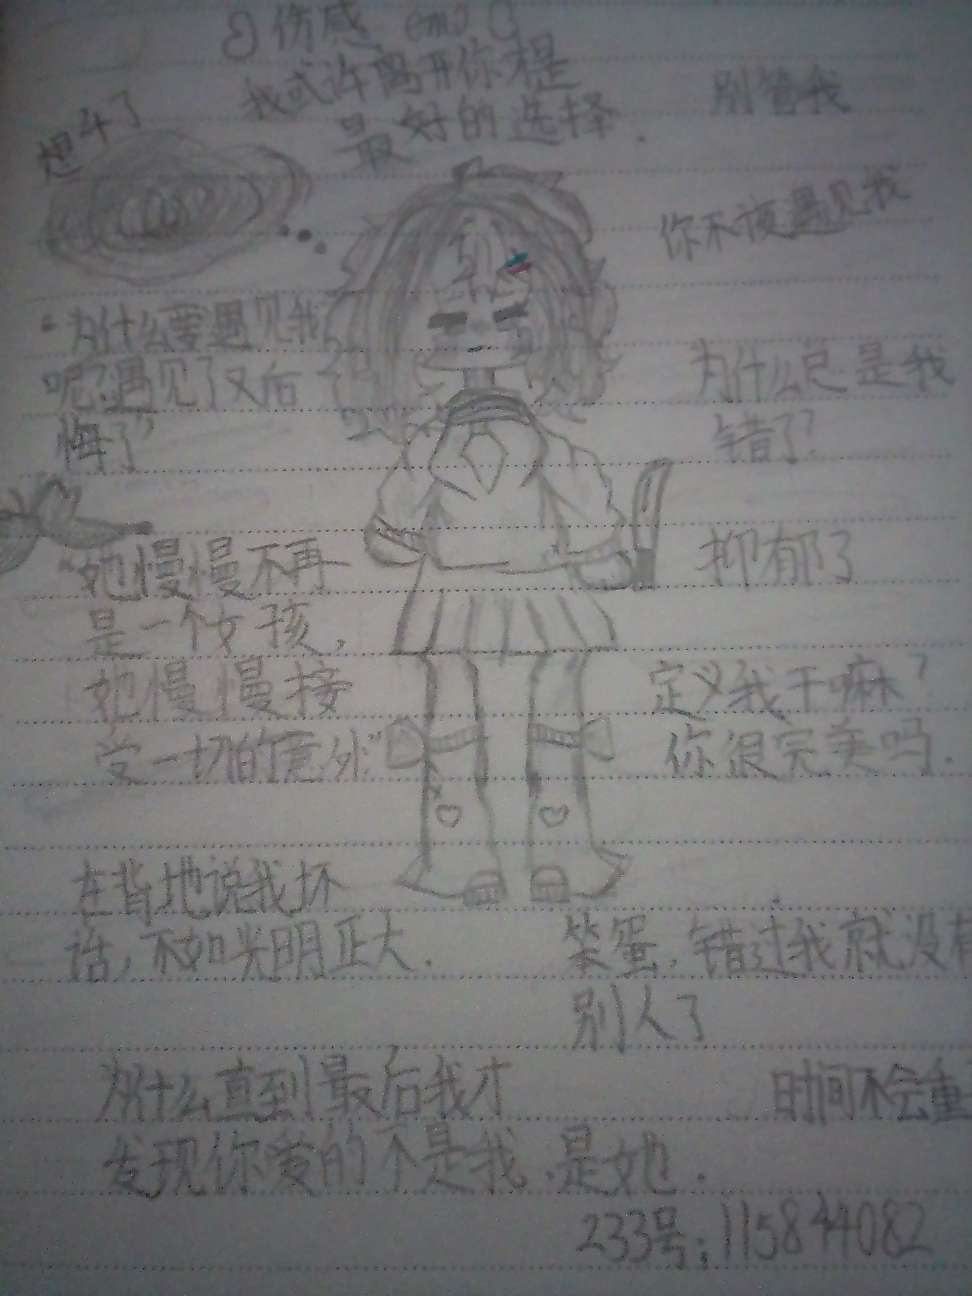 伤感 emo
我或许离开你才是
最好的选择.
别管我
想斗了
你不该遇见我
“为什么要遇见我
呢?遇见了又后
悔了”
为什么总是我
错了?
“她慢慢不再
是一个女孩,
她慢慢接
受一切的意外”
抑郁了
定义我干嘛?
你很完美吗.
在背地说我坏
话,不如光明正大.
笨蛋,错过我就没有
别人了
为什么直到最后我才
发现你爱的不是我.是她.
时间不会重
233号:115844082